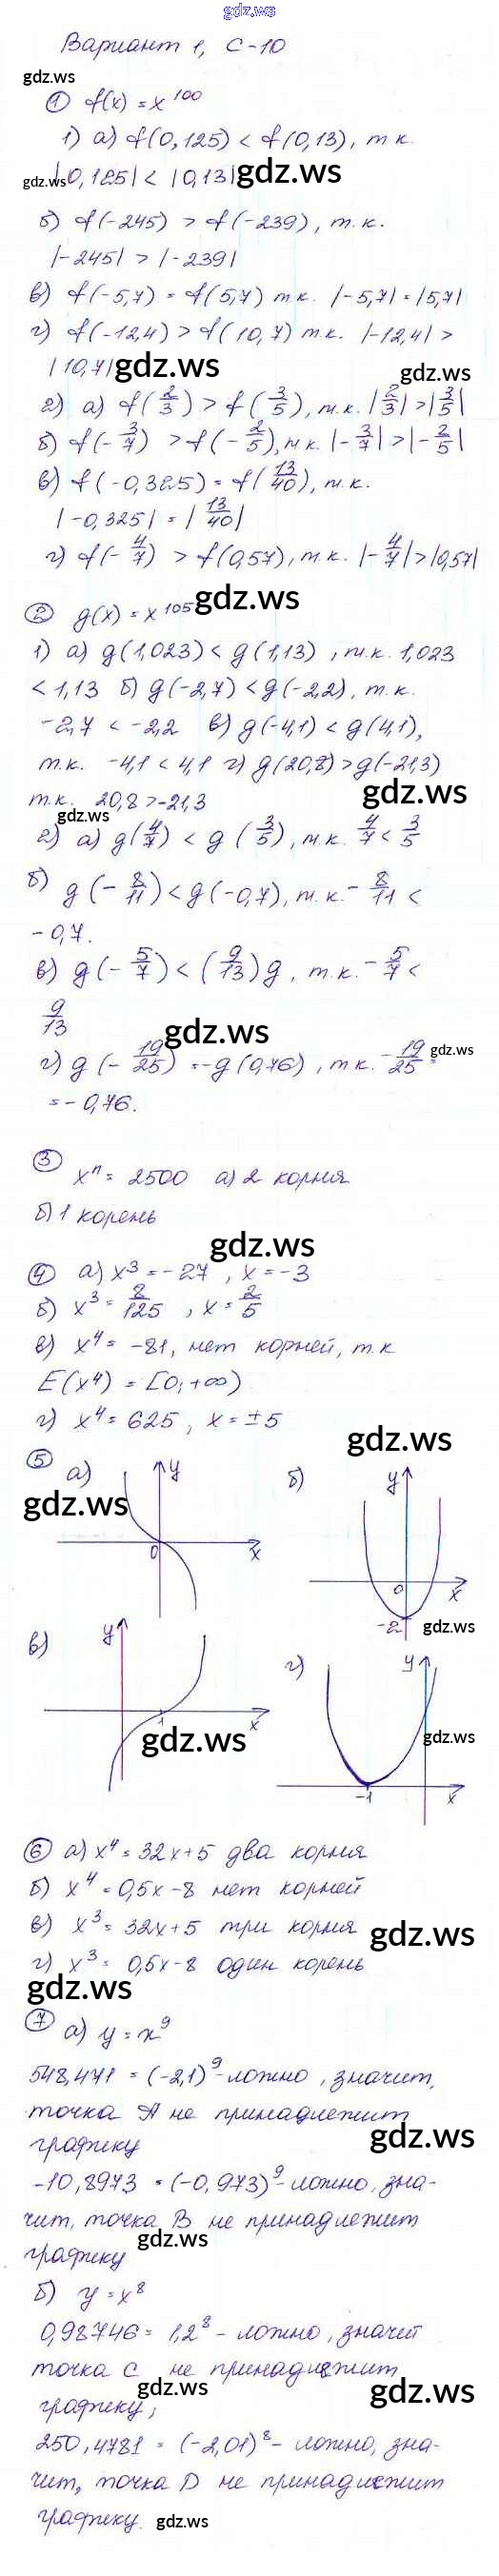 gdz.ws
Вариант 1, С-10
gdz.ws
① f(x) = x^100
1) а) f(0,125) < f(0,13), т.к.
|0,125| < |0,13| gdz.ws
gdz.ws
б) f(-245) > f(-239), т.к.
|-245| > |-239|
в) f(-5,7) = f(5,7) т.к. |-5,7| = |5,7|
г) f(-12,4) > f(10,7) т.к. |-12,4| >
|10,7| gdz.ws
gdz.ws
2) а) f(2/3) > f(3/5), т.к. |2/3| > |3/5|
б) f(-3/7) > f(-2/5), т.к. |-3/7| > |-2/5|
в) f(-0,325) = f(13/40), т.к.
|-0,325| = |13/40|
г) f(-4/7) > f(0,57), т.к. |-4/7| > |0,57|
② g(x) = x^105 gdz.ws
1) а) g(1,023) < g(1,13), т.к. 1,023
< 1,13 б) g(-2,7) < g(-2,2), т.к.
-2,7 < -2,2 в) g(-4,1) < g(4,1),
т.к. -4,1 < 4,1 г) g(20,8) > g(-21,3)
т.к. 20,8 > -21,3 gdz.ws
gdz.ws
2) а) g(4/7) < g(3/5), т.к. 4/7 < 3/5
б) g(-8/11) < g(-0,7), т.к. -8/11 <
-0,7.
в) g(-5/7) < (9/13)g, т.к. -5/7 <
9/13
gdz.ws
г) g(-19/25) = -g(0,76), т.к. -19/25 = gdz.ws
= -0,76.
③ x^n = 2500 а) 2 корня
б) 1 корень
gdz.ws
④ а) x^3 = -27, x = -3
б) x^3 = 8/125, x = 2/5
в) x^4 = -81, нет корней, т.к
E(x^4) = [0; +∞)
г) x^4 = 625, x = ±5
gdz.ws
⑤ а) y 0 x
gdz.ws
б) y 0 x -2
gdz.ws
в) y 1 x
gdz.ws
г) y -1 x
gdz.ws
⑥ а) x^4 = 32x+5 два корня
б) x^4 = 0,5x-8 нет корней
в) x^3 = 32x+5 три корня gdz.ws
г) x^3 = 0,5x-8 один корень
gdz.ws
⑦ а) y = x^9
548,471 = (-2,1)^9 - ложно, значит,
точка А не принадлежит
графику gdz.ws
-10,8973 = (-0,973)^9 - ложно, зна-
чит, точка В не принадлежит
gdz.ws
графику
б) y = x^8
0,98746 = 1,2^8 - ложно, значит
точка С не принадлежит
gdz.ws gdz.ws
графику,
250,4781 = (-2,01)^8 - ложно, зна-
чит, точка D не принадлежит
графику. gdz.ws